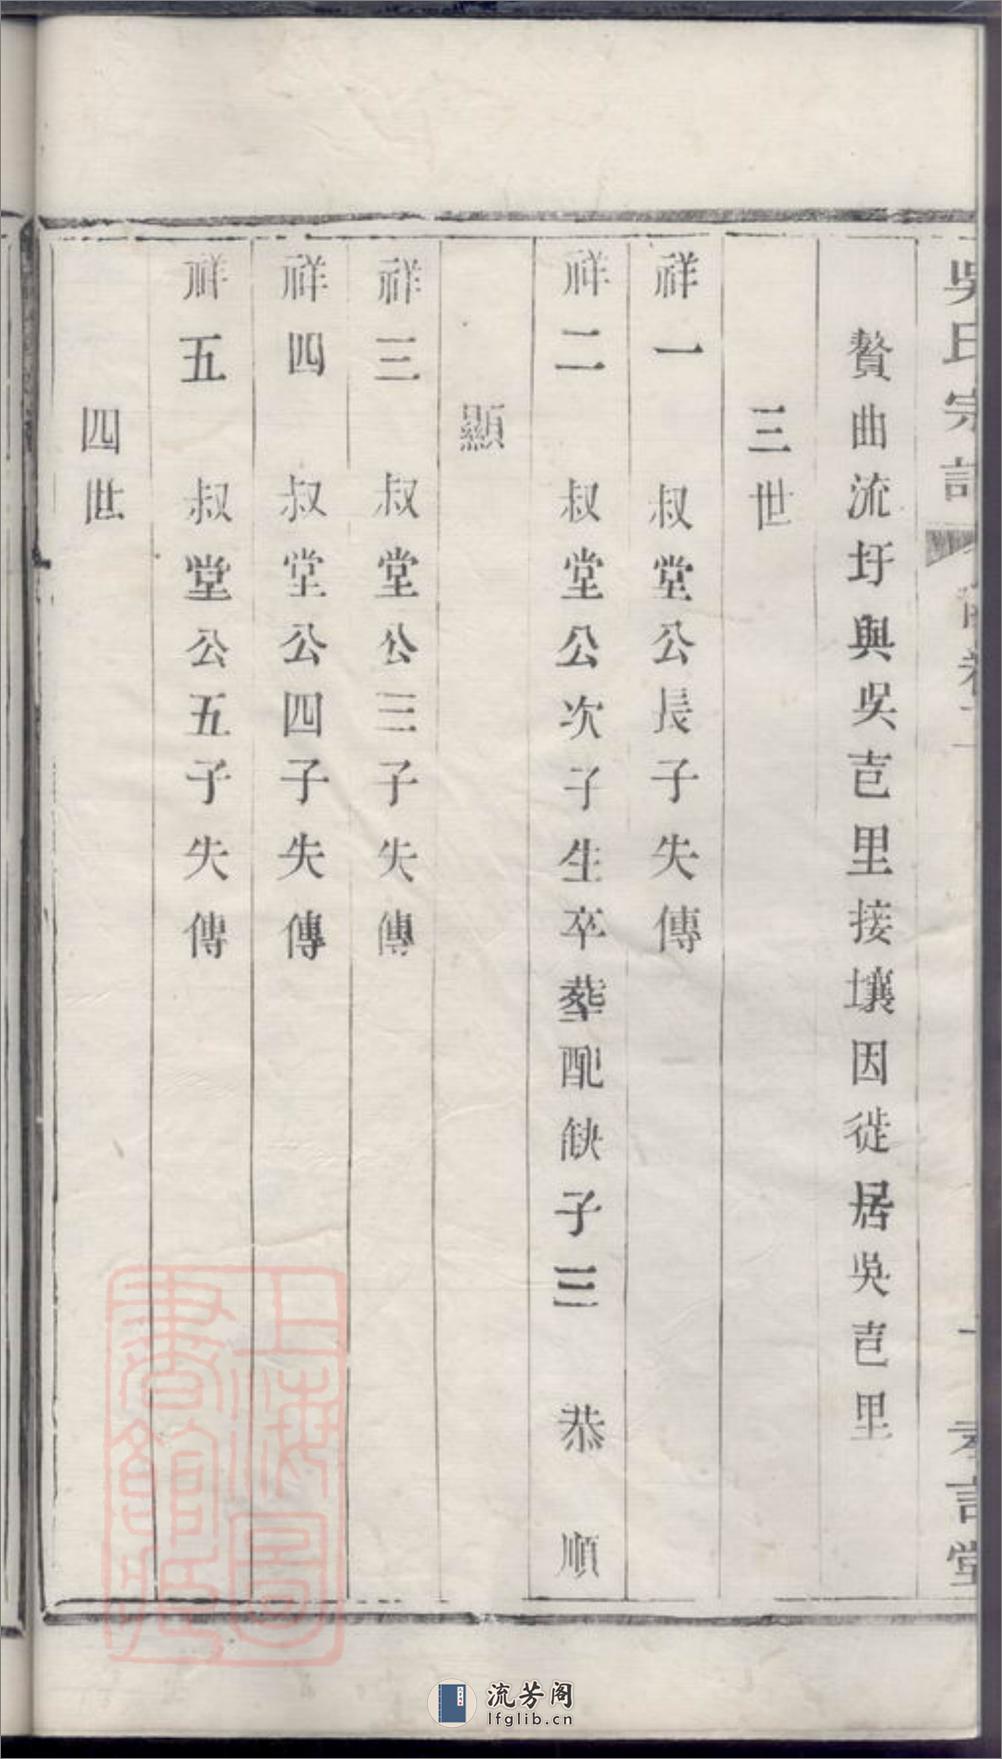 吳氏宗譜
贅曲流圩與吳䓊里接壤因徙居吳䓊里
三世
祥一　叔堂公長子失傳
祥二　叔堂公次子生卒葬配缺子三　恭　順
顯
祥三　叔堂公三子失傳
祥四　叔堂公四子失傳
祥五　叔堂公五子失傳
四世
上海圖書館藏
流芳阁
lfglib.cn